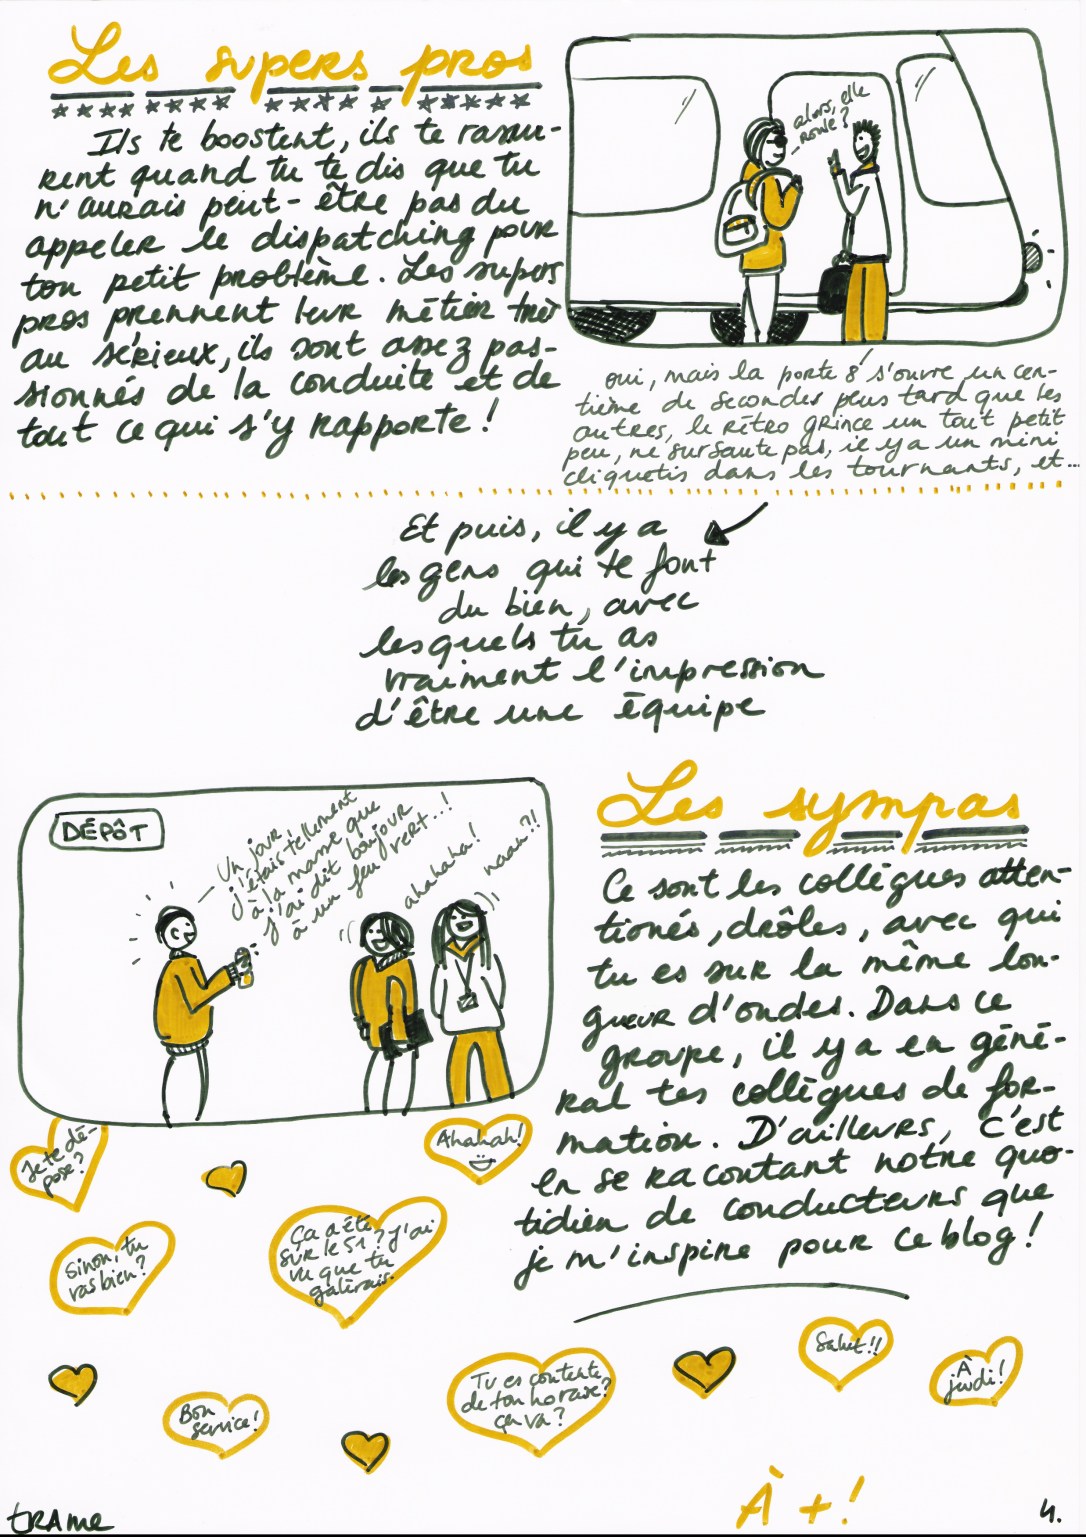 Les supers pros
Ils te boostent, ils te rassu-
rent quand tu te dis que tu
n'aurais peut-être pas du
appeler le dispatching pour
ton petit problème. Les supers
pros prennent leur métier très
au sérieux, ils sont assez pas-
sionnés de la conduite et de
tout ce qui s'y rapporte !
alors, elle
roule ?
oui, mais la porte 8 s'ouvre un cen-
tième de secondes plus tard que les
autres, le rétro grince un tout petit
peu, ne sursaute pas, il y a un mini
cliquetis dans les tournants, et...
Et puis, il y a
les gens qui te font
du bien, avec
lesquels tu as
vraiment l'impression
d'être une équipe
DÉPÔT
Un jour
j'étais tellement
à la masse que
j'ai dit bonjour
à un feu vert...!
ahahaha!
naan?!
Les sympas
Ce sont les collègues atten-
tionés, drôles, avec qui
tu es sur la même lon-
gueur d'ondes. Dans ce
groupe, il y a en géné-
ral tes collègues de for-
mation. D'ailleurs, c'est
en se racontant notre quo-
tidien de conducteurs que
je m'inspire pour ce blog !
Je te dé-
pose ?
Ahahah!
Sinon, tu
vas bien ?
Ça a été
sur le 51 ? J'ai
vu que tu
galérais.
Salut !!
À
jeudi !
Tu es contente
de ton horaire ?
ça va ?
Bon
service !
À + !
tRAme
4.